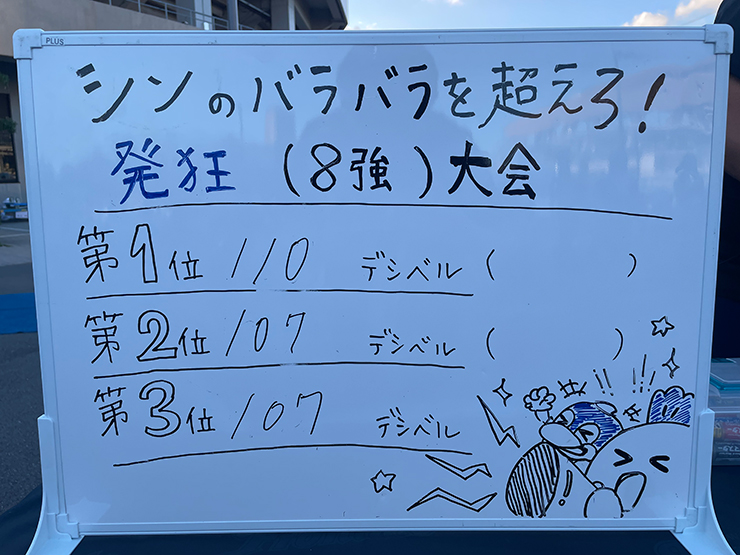 PLUS
シンのバラバラを超えろ!
発狂(8強)大会
第1位 110 デシベル( )
第2位 107 デシベル( )
第3位 107 デシベル